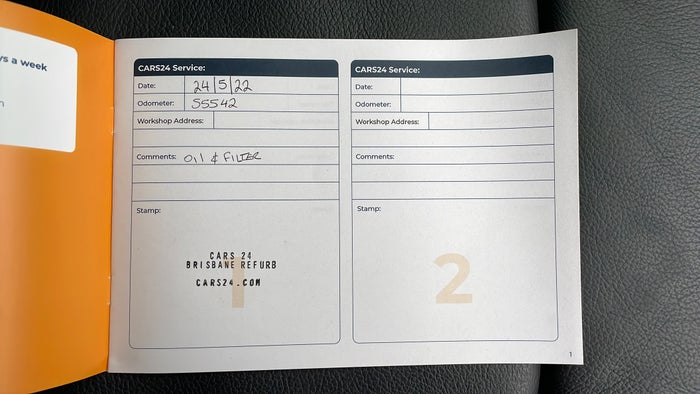 ys a week
CARS24 Service:
Date: 24/5/22
Odometer: 55542
Workshop Address:
Comments: Oil & FILTER
Stamp:
CARS 24
BRISBANE REFURB
CARS24.COM
1
CARS24 Service:
Date:
Odometer:
Workshop Address:
Comments:
Stamp:
2
1